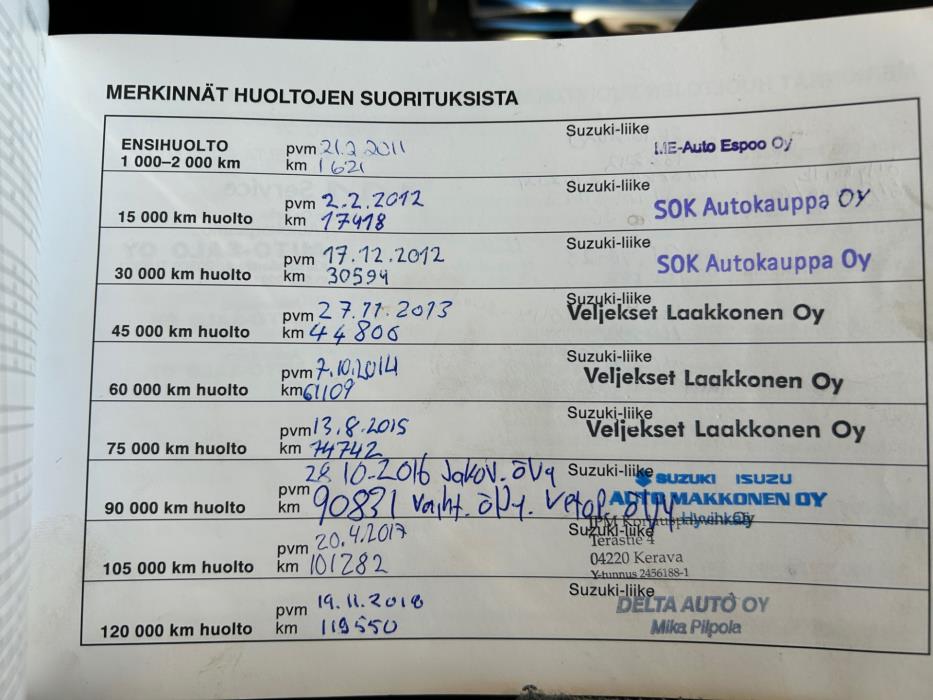 MERKINNÄT HUOLTOJEN SUORITUKSISTA
ENSIHUOLTO
1 000–2 000 km
pvm 21.2.2011
km 1621
Suzuki-liike
ME-Auto Espoo Oy
15 000 km huolto
pvm 2.2.2012
km 17418
Suzuki-liike
SOK Autokauppa Oy
30 000 km huolto
pvm 17.12.2012
km 30594
Suzuki-liike
SOK Autokauppa Oy
45 000 km huolto
pvm 27.11.2013
km 44806
Suzuki-liike
Veljekset Laakkonen Oy
60 000 km huolto
pvm 7.10.2014
km 61109
Suzuki-liike
Veljekset Laakkonen Oy
75 000 km huolto
pvm 13.8.2015
km 74742
Suzuki-liike
Veljekset Laakkonen Oy
90 000 km huolto
28.10.2016 Jakov. öljy
pvm
km 90831 Vaiht. öljy. Vetop. öljy
Suzuki-liike
SUZUKI ISUZU
AUTO MAKKONEN OY
Hyvinkää
105 000 km huolto
pvm 20.4.2017
km 101282
Suzuki-liike
Terästie 4
04220 Kerava
Y-tunnus 2456188-1
120 000 km huolto
pvm 19.11.2018
km 119550
Suzuki-liike
DELTA AUTO OY
Mika Pilpola